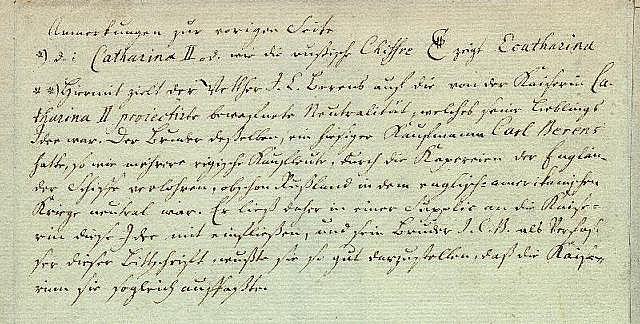 Anmerkungen zur vorigen Seite
*) d. i. Catharina II. od. wie die rußische Chiffre E zeigt Ecatharina
**) Hiermit zielt der Verfasser J. C. Berens auf die von der Kaiserin Ca-
tharina II projectirte bewaffnete Neutralität, welches seine Lieblings
Idee war. Der Bruder desselben, ein hiesiger Kaufmann Carl Berens
hatte, so wie mehrere rigische Kaufleute, durch die Kapereien der Englän-
der Schiffe verlohren, obschon Rußland in dem englisch-amerikanischen
Kriege neutral war. Er ließ daher in einer Supplic an die Kaise-
rin diese Idee mit einfließen, und sein Bruder J. C. B. als Verfas-
ser dieser Bittschrift wußte sie so gut darzustellen, daß die Kaise-
rinn sie sogleich auffaßte.